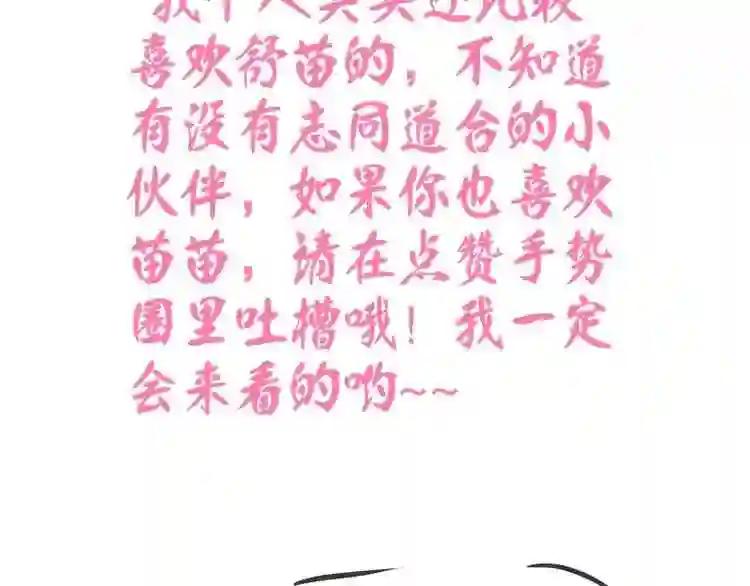 我个人其实还比较
喜欢舒苗的，不知道
有没有志同道合的小
伙伴，如果你也喜欢
苗苗，请在点赞手势
圈里吐槽哦！我一定
会来看的哟~~